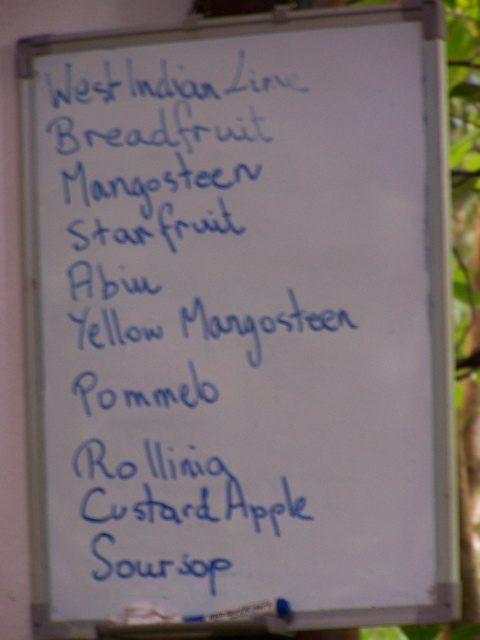 West Indian Lime
Breadfruit
Mangosteen
Starfruit
Abiu
Yellow Mangosteen
Pommelo
Rollinia
Custard Apple
Soursop